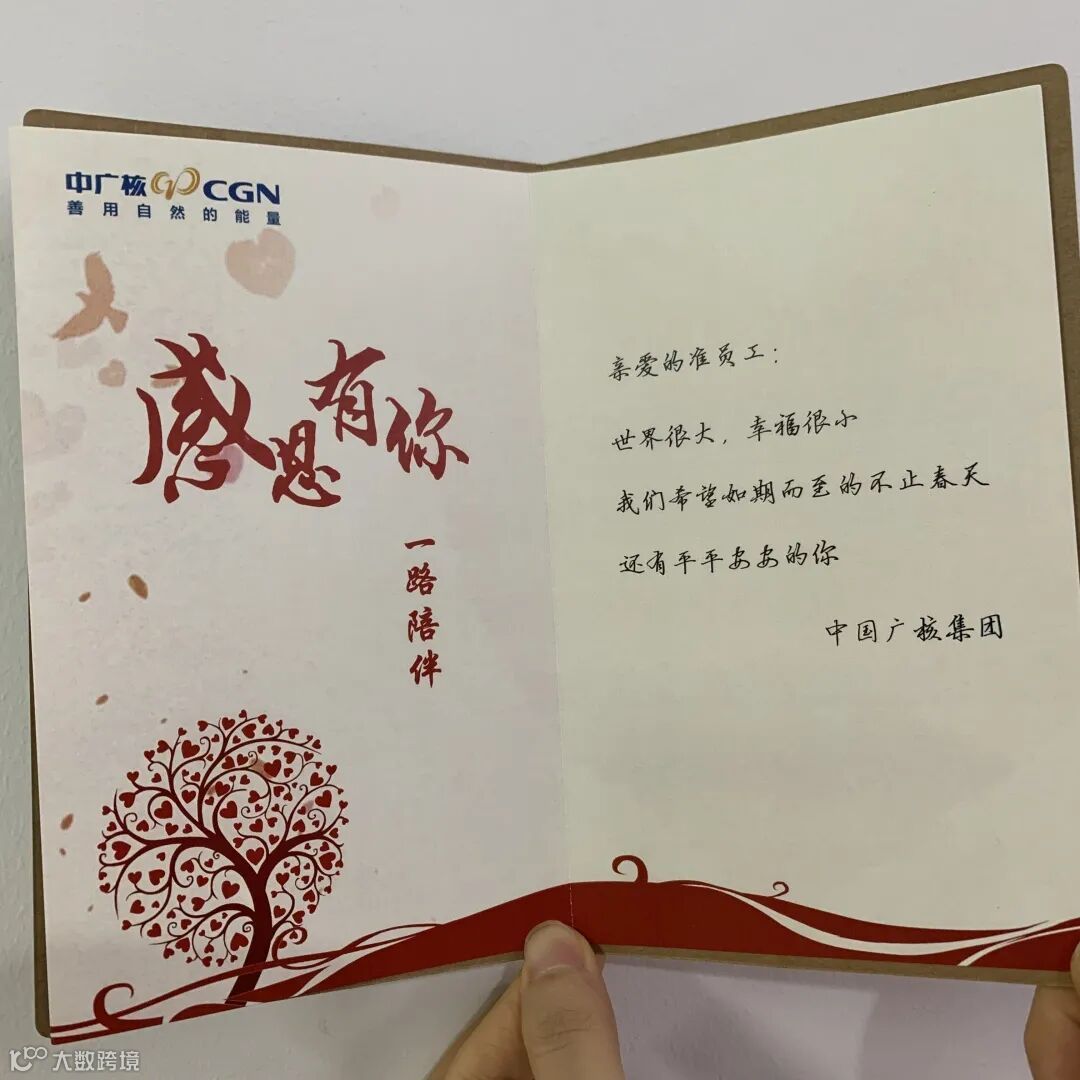 中广核 CGN
善用自然的能量
感恩有你
一路陪伴
亲爱的准员工：
世界很大，幸福很小
我们希望如期而至的不止春天
还有平平安安的你
中国广核集团
大数跨境